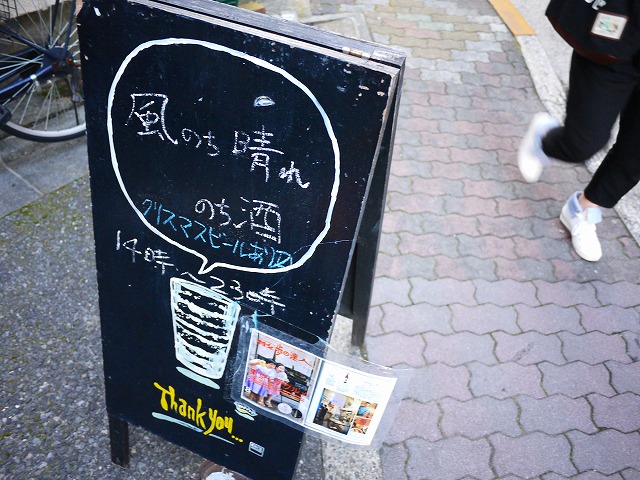 風のち晴れ
のち酒
クリスマスビールあり〼
14時～23時
Thank you...